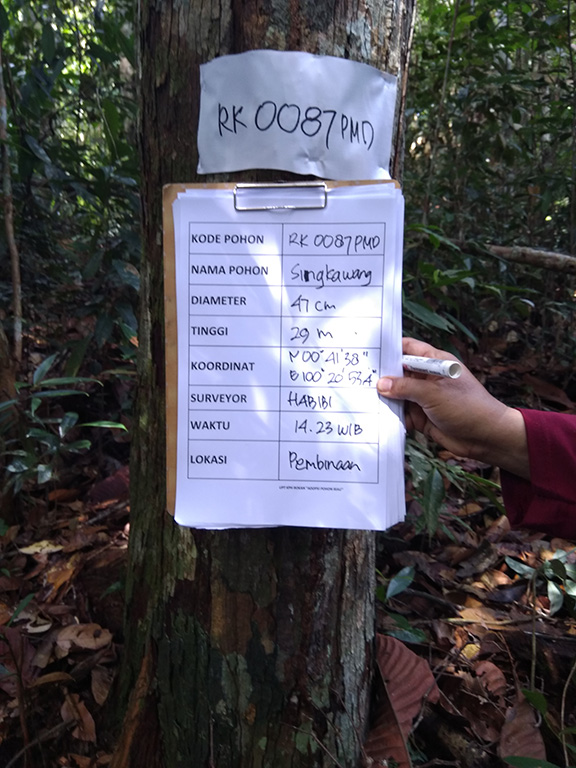 RK 0087 PMD
KODE POHON RK 0087 PMD
NAMA POHON Singkawang
DIAMETER 47 cm
TINGGI 29 m
KOORDINAT N 00° 41' 38"
E 100° 20' 53,4"
SURVEYOR HABIBI
WAKTU 14.23 WIB
LOKASI Pembinaan